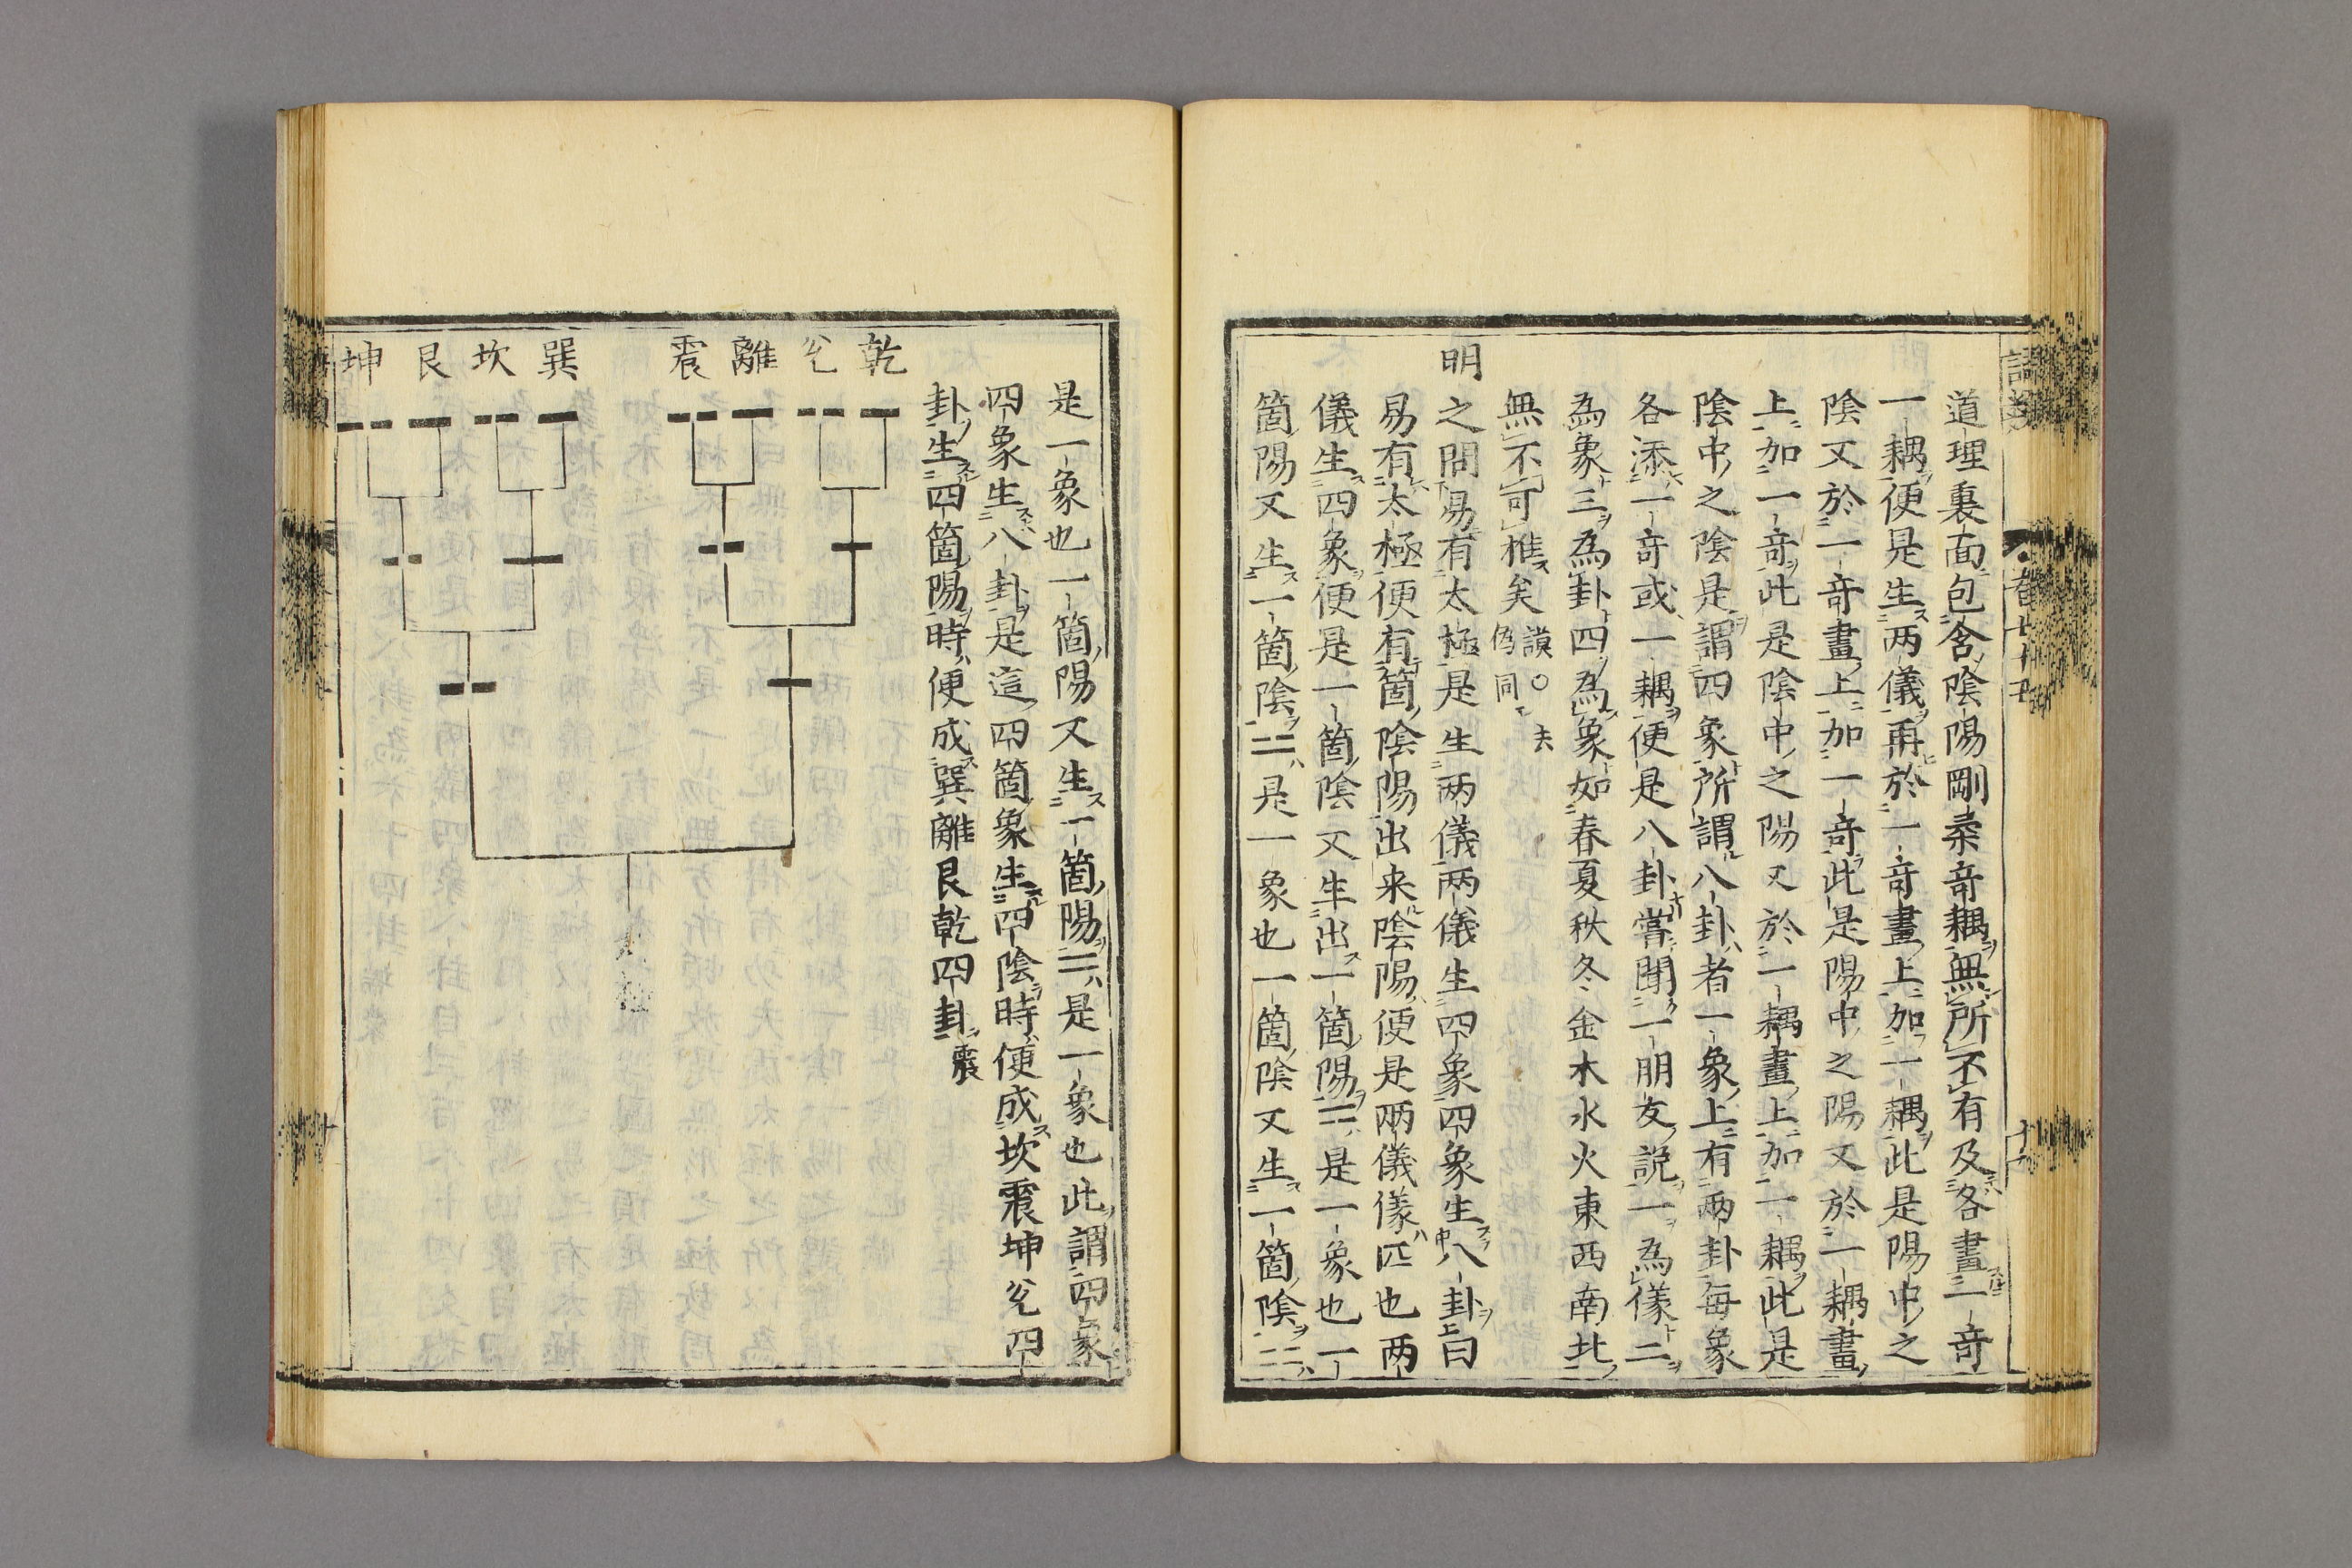 道理裏面包含陰陽剛柔奇耦無所不有及各畫一奇
一耦便是生両儀再於一奇畫上加一耦此是陽中之
陰又於一奇畫上加一奇此是陽中之陽又於一耦畫
上加一奇此是陰中之陽又於一耦畫上加一耦此是
陰中之陰是謂四象所謂八卦者一象上有両卦每象
各添一奇或一耦便是八卦嘗聞一朋友說一為儀二
為象三為卦四為象如春夏秋冬金木水火東西南北
無不可推矣謨○去偽同
明之問易有太極是生両儀両儀生四象四象生八卦曰
易有太極便有箇陰陽出来陰陽便是兩儀儀匹也両
儀生四象便是一箇陰又生出一箇陽⚍是一象也一
箇陽又生一箇陰⚎是一象也一箇陰又生一箇陰⚏
是一象也一箇陽又生一箇陽⚌是一象也此謂四象
四象生八卦是這四箇象生四陰時便成坎震坤兊四
卦生四箇陽時便成巽離艮乾四卦震
乾 兊 離 震 巽 坎 艮 坤
太極